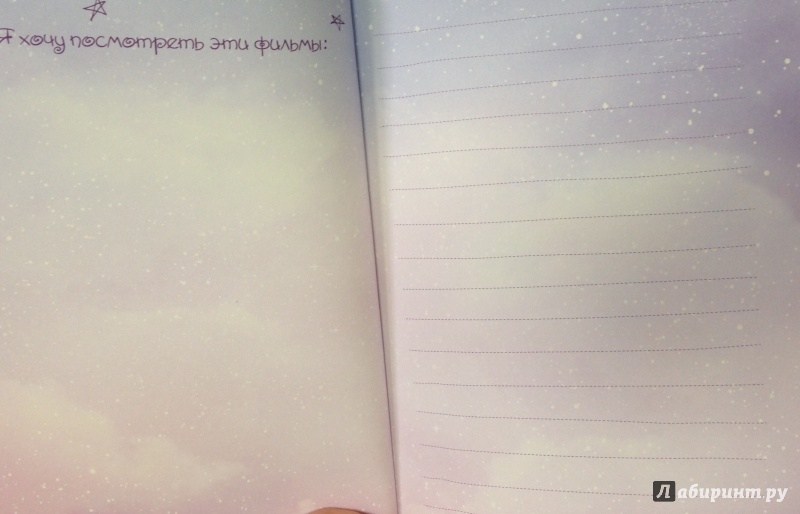 Я хочу посмотреть эти фильмы:
Лабиринт.ру